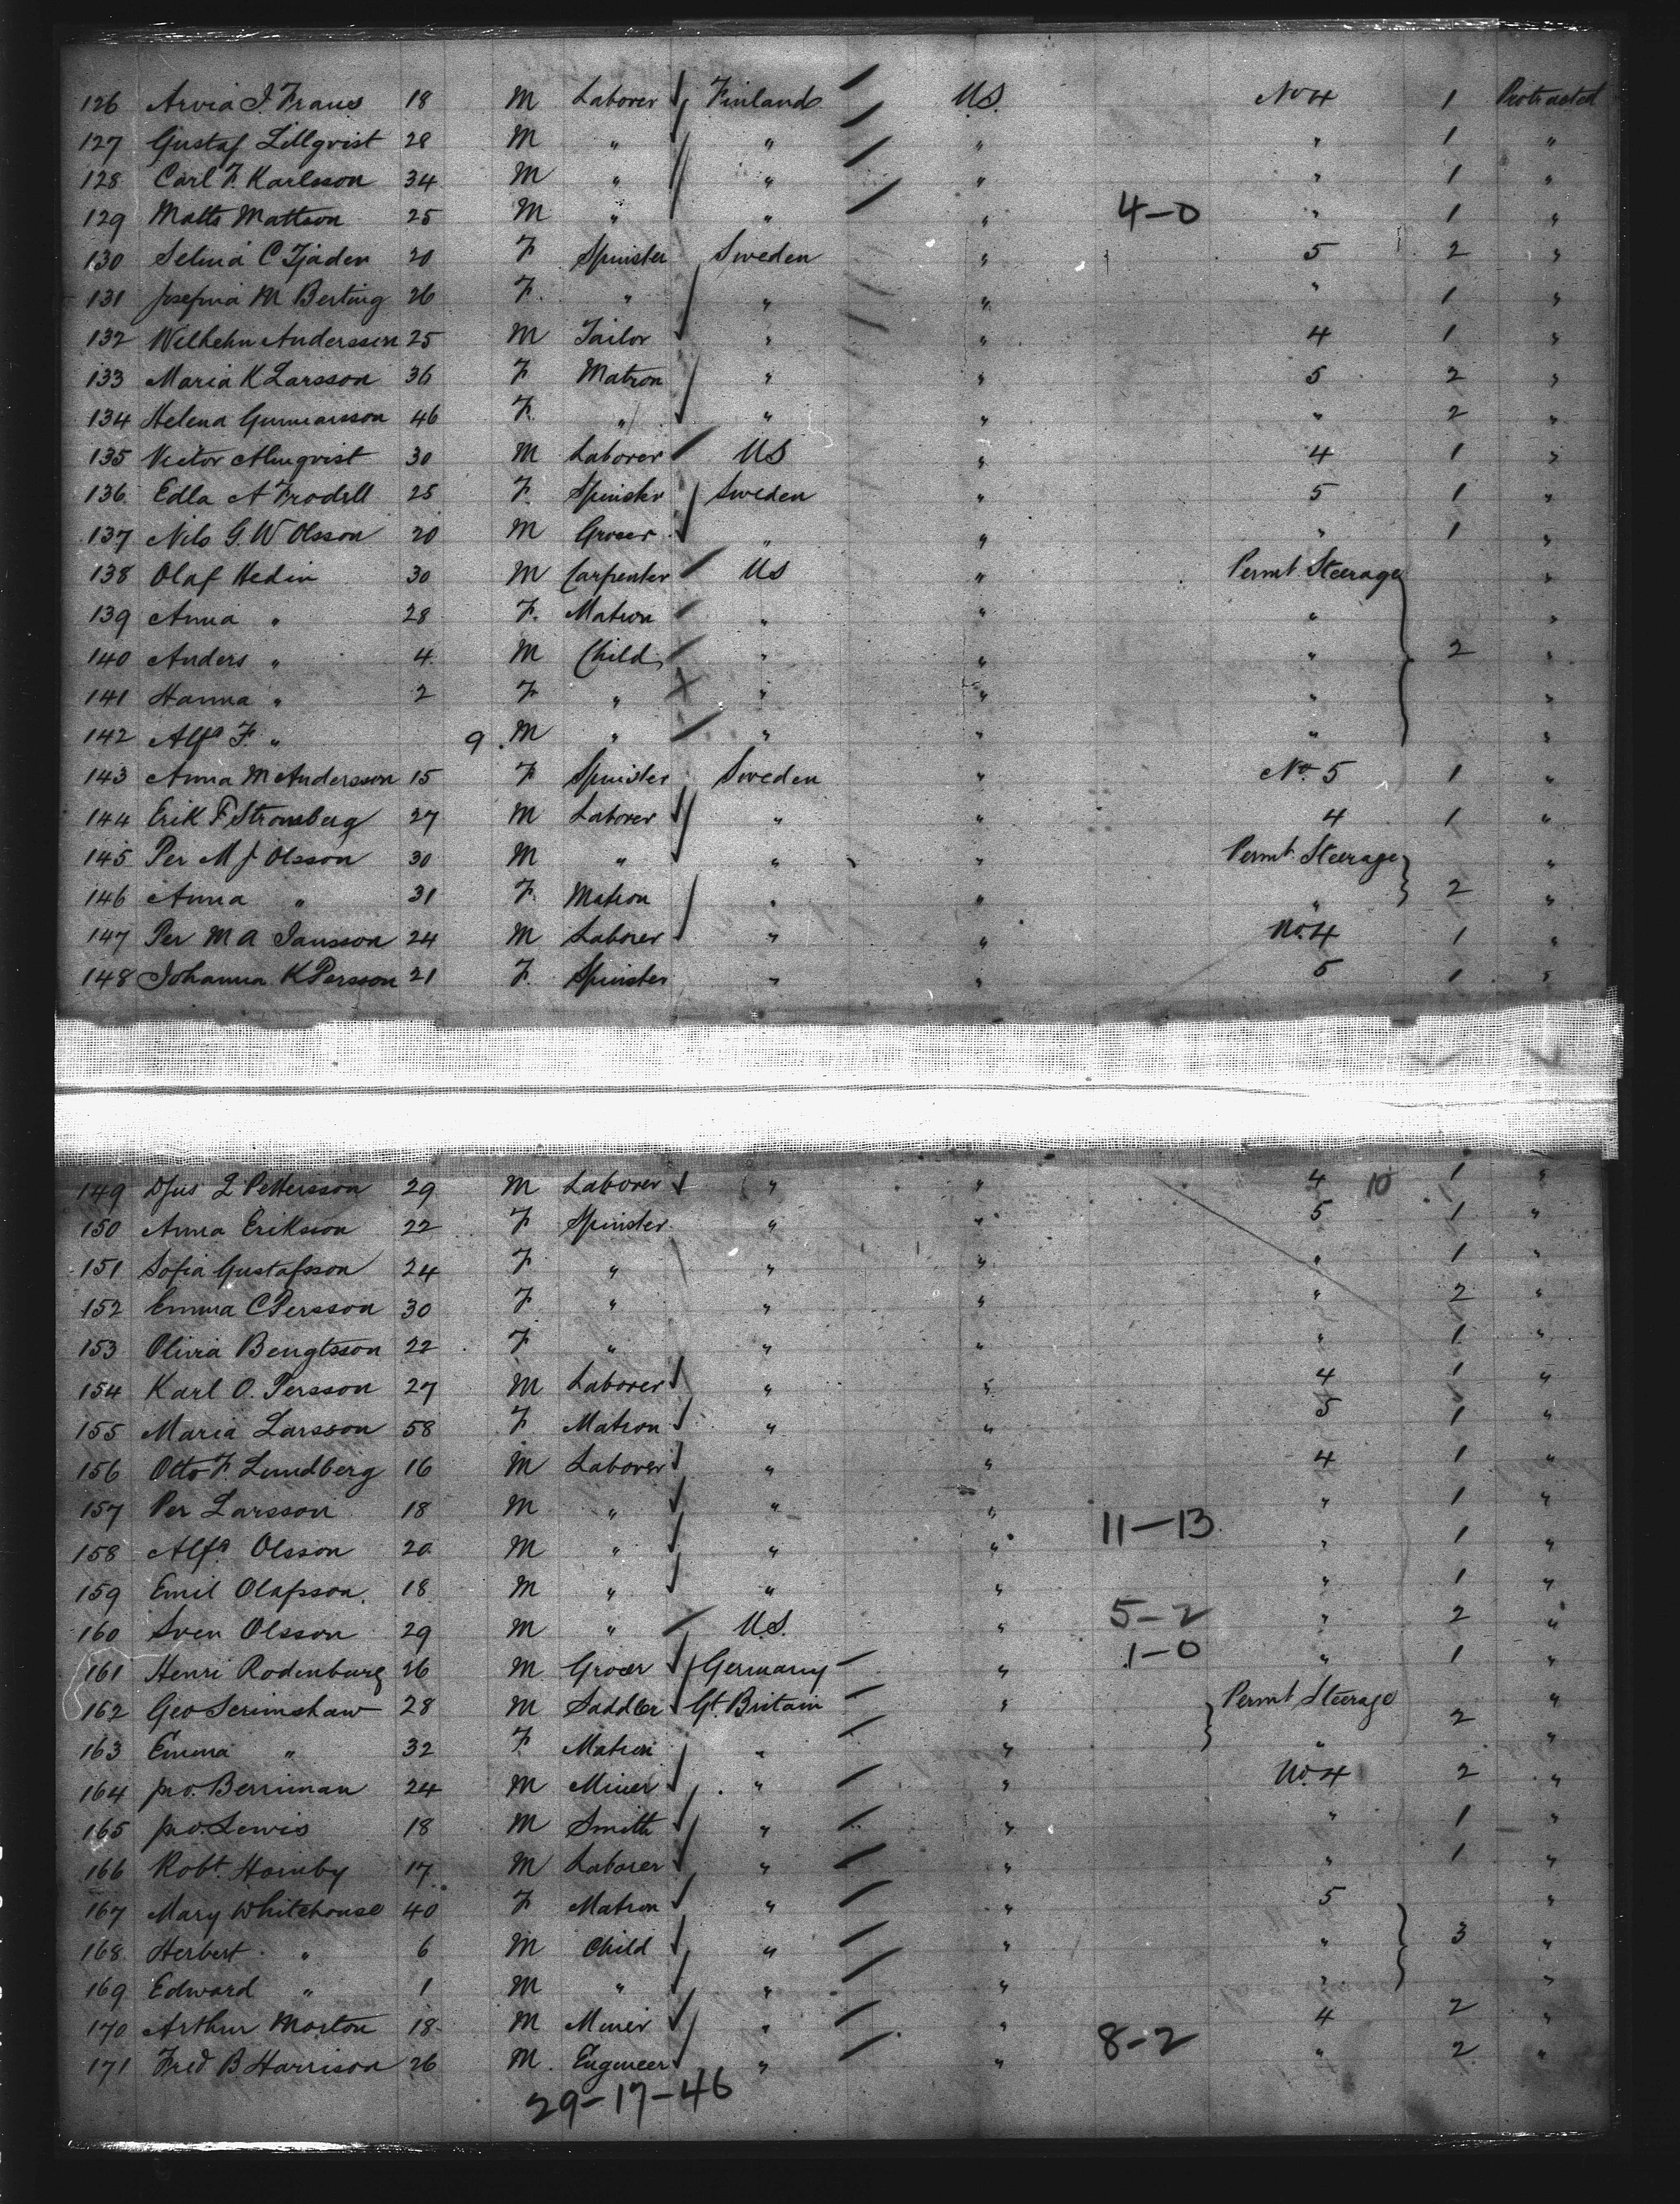 126 Arvid J. Frans 18 M Laborer Finland U.S. No 4 1 Protracted
127 Gustaf Lillqvist 28 M " " " " 1 "
128 Carl F. Karlsson 34 M " " " " 1 "
129 Matts Mattson 25 M " " " 4-0 " 1 "
130 Selma C Tjäder 20 F Spinster Sweden " 5 2 "
131 Josefina M Berting 26 F " " " " 1 "
132 Wilhelm Anderssen 25 M Tailor " " 4 1 "
133 Maria K Larsson 36 F Matron " " 5 2 "
134 Helena Gunnarsson 46 F " " " " 2 "
135 Victor Almqvist 30 M Laborer US " 4 1 "
136 Edla A Frodell 25 F Spinster Sweden " 5 1 "
137 Nils G. W Olsson 20 M Grocer " " " 1 "
138 Olaf Hedin 30 M Carpenter US " Permt Steerage "
139 Anna " 28 F. Matron " " " "
140 Anders " 4 M Child " " " 2 "
141 Hanna " 2 F " " " " "
142 Alfd F. " 9 M " " " " "
143 Anna M Andersson 15 F Spinster Sweden " No 5 1 "
144 Erik F Stromberg 27 M Laborer " " 4 1 "
145 Per M J Olsson 30 M " " " Permt Steerage "
146 Anna " 31 F Matron " " " 2 "
147 Per M A Jansson 24 M Laborer " " No. 4 1 "
148 Johanna K Persson 21 F. Spinster " " 5 1 "
149 L Pettersson 29 M Laborer " " 4 10 1 "
150 Anna Eriksson 22 F Spinster " " 5 1 "
151 Sofia Gustafsson 24 F " " " " 1 "
152 Emma C Persson 30 F " " " " 2 "
153 Olivia Bengtsson 22 F " " " " 1 "
154 Karl O. Persson 27 M Laborer " " 4 1 "
155 Maria Larsson 58 F Matron " " 5 1 "
156 Otto F. Lundberg 16 M Laborer " " 4 1 "
157 Per Larsson 18 M " " " " 1 "
11-13
158 Alfd Olsson 20 M " " " " 1 "
159 Emil Olafsson 18 M " " " " 1 "
160 Sven Olsson 29 M " U.S. " 5-2 " 2 "
161 Henri Rodenburg 26 M Grocer Germany " 1-0 " 1 "
162 Geo Scrimshaw 28 M Saddler Gt. Britain " Permt Steerage "
163 Emma " 32 F Matron " " " 2 "
164 Jno. Berriman 24 M Miner " " No. 4 2 "
165 Jno. Lewis 18 M Smith " " " 1 "
166 Robt. Hornby 17 M Laborer " " " 1 "
167 Mary Whitehouse 40 F Matron " " 5 "
168 Herbert " 6 M Child " " " 3 "
169 Edward " 1 M " " " " "
170 Arthur Morton 18 M Miner " " 4 2 "
171 Fred B Harrison 26 M. Engineer " " 8-2 " 2 "
29-17-46